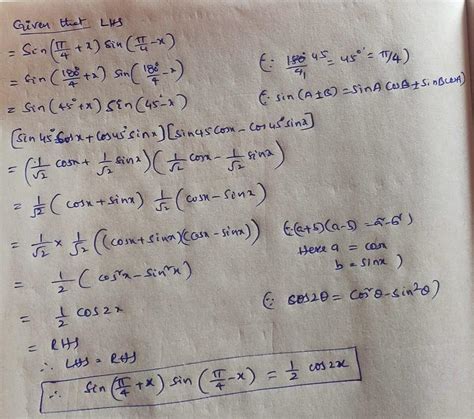 Given that LHS
= Sin(π/4 + x) Sin(π/4 - x)
= Sin(180°/4 + x) Sin(180°/4 - x) (∵ 180° 45/4 = 45° = π/4)
= Sin(45° + x) Sin(45° - x) (∵ Sin(A ± B) = SinA CosB ± SinB CosA)
[Sin45° Cosx + Cos45° Sinx] [Sin45 Cosx - Cos45° Sinx]
= (1/√2 Cosx + 1/√2 Sinx) (1/√2 Cosx - 1/√2 Sinx)
= 1/√2 (Cosx + Sinx) 1/√2 (Cosx - Sinx)
= 1/√2 × 1/√2 ((Cosx + Sinx)(Cosx - Sinx)) (∵ (a+b)(a-b) = a² - b²
Here a = Cosx
b = Sinx)
= 1/2 (Cos²x - Sin²x)
= 1/2 Cos2x (∵ Cos2θ = Cos²θ - Sin²θ)
= RHS
∴ LHS = RHS
∴ Sin(π/4 + x) Sin(π/4 - x) = 1/2 Cos2x